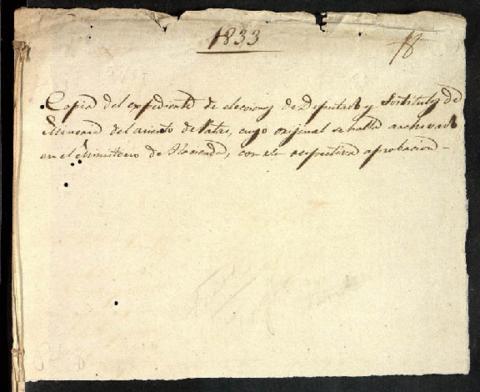 1833
18
Copia del expediente de eleccion de Diputado y Sostituto de
Mineria del asiento de Yatas, cuyo original se halla archivado
en el Ministerio de Hacienda, con la respectiva aprobacion -